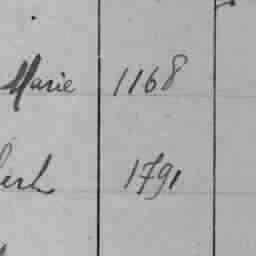 Marie 1168
1791